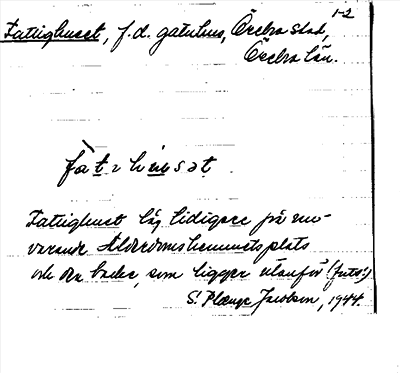 1-2
Fattighuset, f.d. gatuhus, Örebro stad,
Örebro län.
fàt₂hu̲sət
Fattighuset låg tidigare på nu-
varande Ålderdomshemmets plats
och den backe, som ligger utanför (forts.)
S. Plænge Jacobson, 1944.